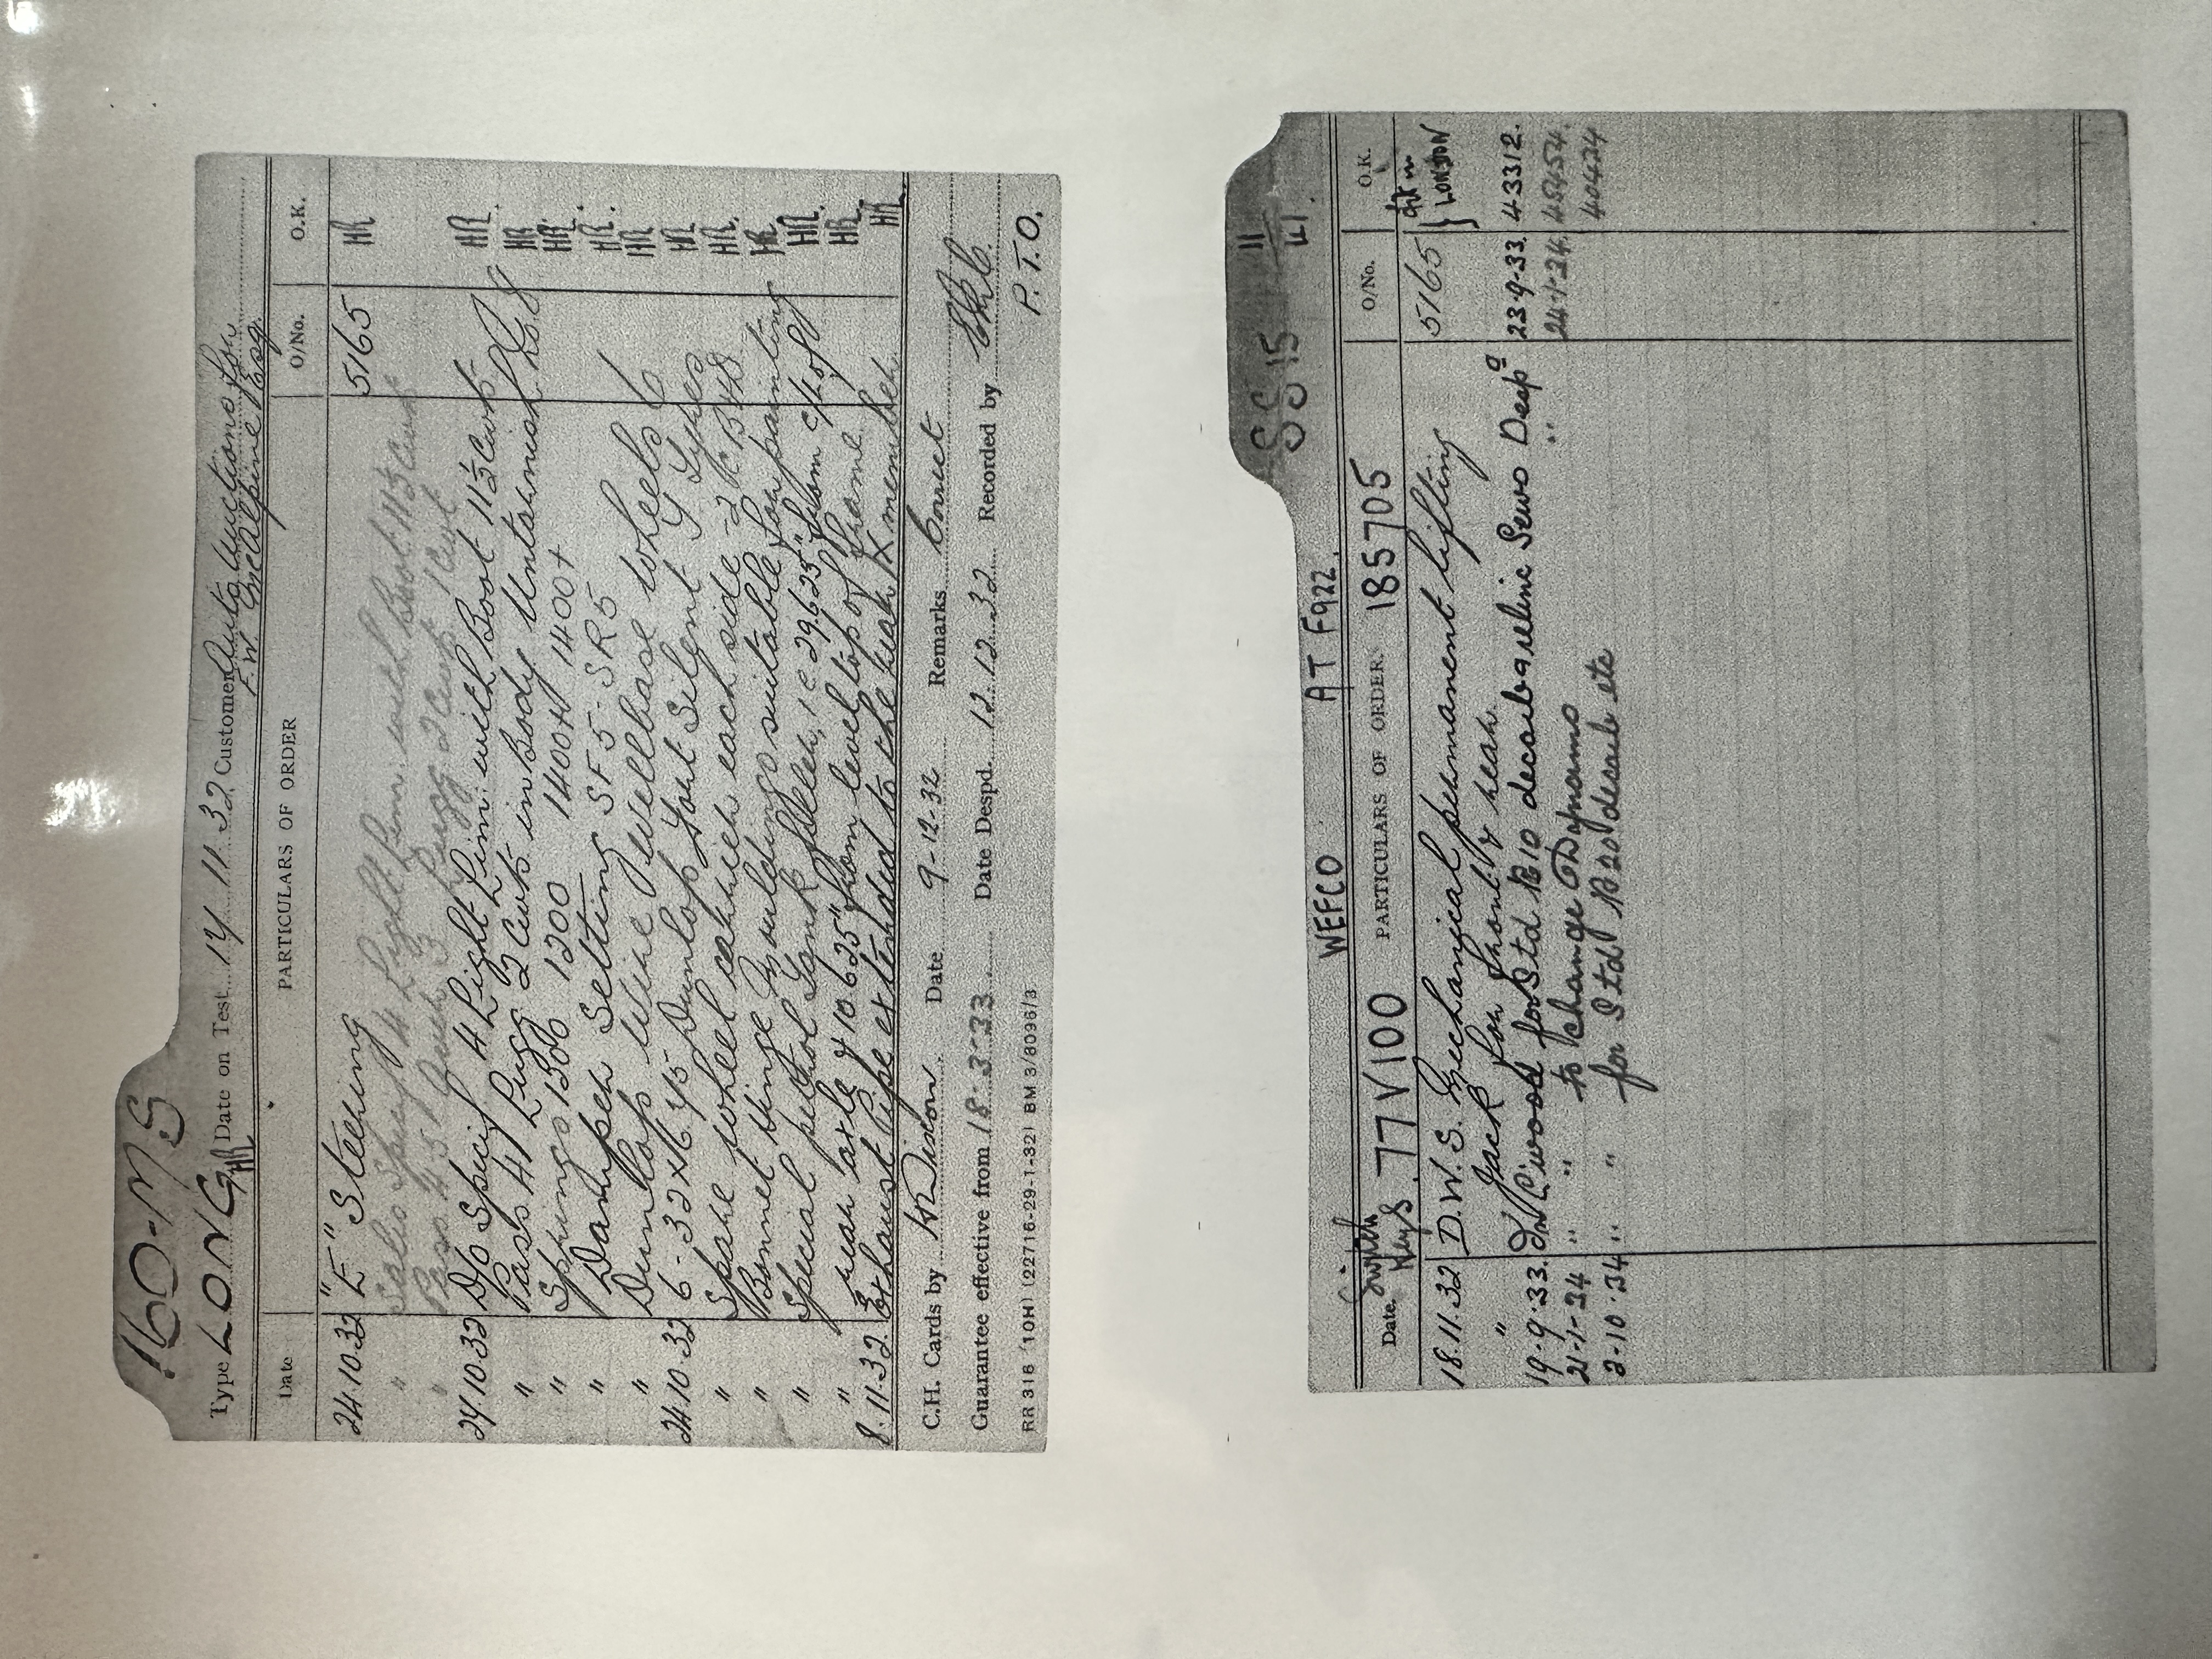 160-MS
Type LONG HR Date on Test 14 11 32 Customer Auto Auctions for
F. W. McAlpine Esq.
Date PARTICULARS OF ORDER O/No. O.K.
24.10.32 "E" Steering 5165 HR
" 4 Light Lim: with Boot 11½ Cwts
" Pass 2 Cwts 1 Cwt
24.10.32 D/o Specif. 4 Light Lim: with Boot 11½ Cwts HR.
" Pass 4/5 Lugg 2 Cwts in Body HR.
" Springs 1300 1200 1400H 1400+ HR.
" Damper Setting SF5 - SR5 HR.
" Dunlop Wire Wellbase Wheels 6 HR
24.10.32 6 - 32 x 6.75 Dunlop Fort Silent Tyres HR
" Spare wheel carriers each side - 2 HR.
" Bonnet Hinge Mouldings suitable for painting HR
" Special petrol Tank filler, i.e 29.625" from c/l of HR.
" rear axle & 10.625" from level top of frame. HR.
8.11.32. Exhaust Pipe extended to the rear X member. HR
C.H. Cards by Dixon Date 9-12-32 Remarks Correct
Guarantee effective from 18.3.33 Date Despd. 12.12.32 Recorded by
RR 316 (10H) (22716-29-1-32) BM 3/8096/3 P.T.O.
11
WEFCO AT F922.
Date. Switch Keys. 77V100 PARTICULARS OF ORDER. 185705 O/No. O.K.
18.11.32 D.W.S. Mechanical permanent lifting 5165
" Jack for front & rear. LONDON
19.9.33. In C'wood for Std B10 decarb & reline Servo Despd 23.9.33. 43312.
21-1-34 " " to change Dynamo " 24.1.34.
2-10.34 " " for Std B20 decarb etc